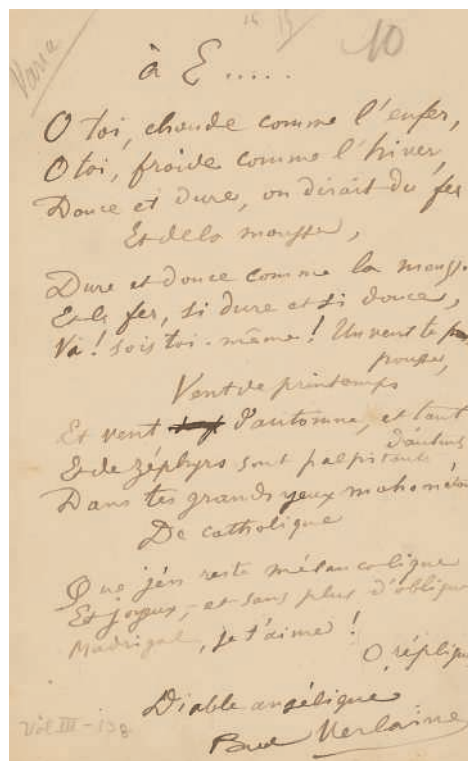 Varia
16
10
à E.....
O toi, chaude comme l'enfer,
O toi, froide comme l'hiver,
Douce et dure, on dirait du fer
Et de la mousse,
Dure et douce comme la mouss
Et le fer, si dure et si douce,
Va! sois toi-même! Un vent te
pousse,
Vent de printemps
Et vent d'automne, et tant
d'autres
Et de zéphyrs sont palpitants
Dans tes grands yeux mahométans
De catholique
Que j'en reste mélancolique
Et joyeux, et sans plus d'oblique
Madrigal, je t'aime!
O réplique
Diable angélique
Paul Verlaine
Vol III - 138